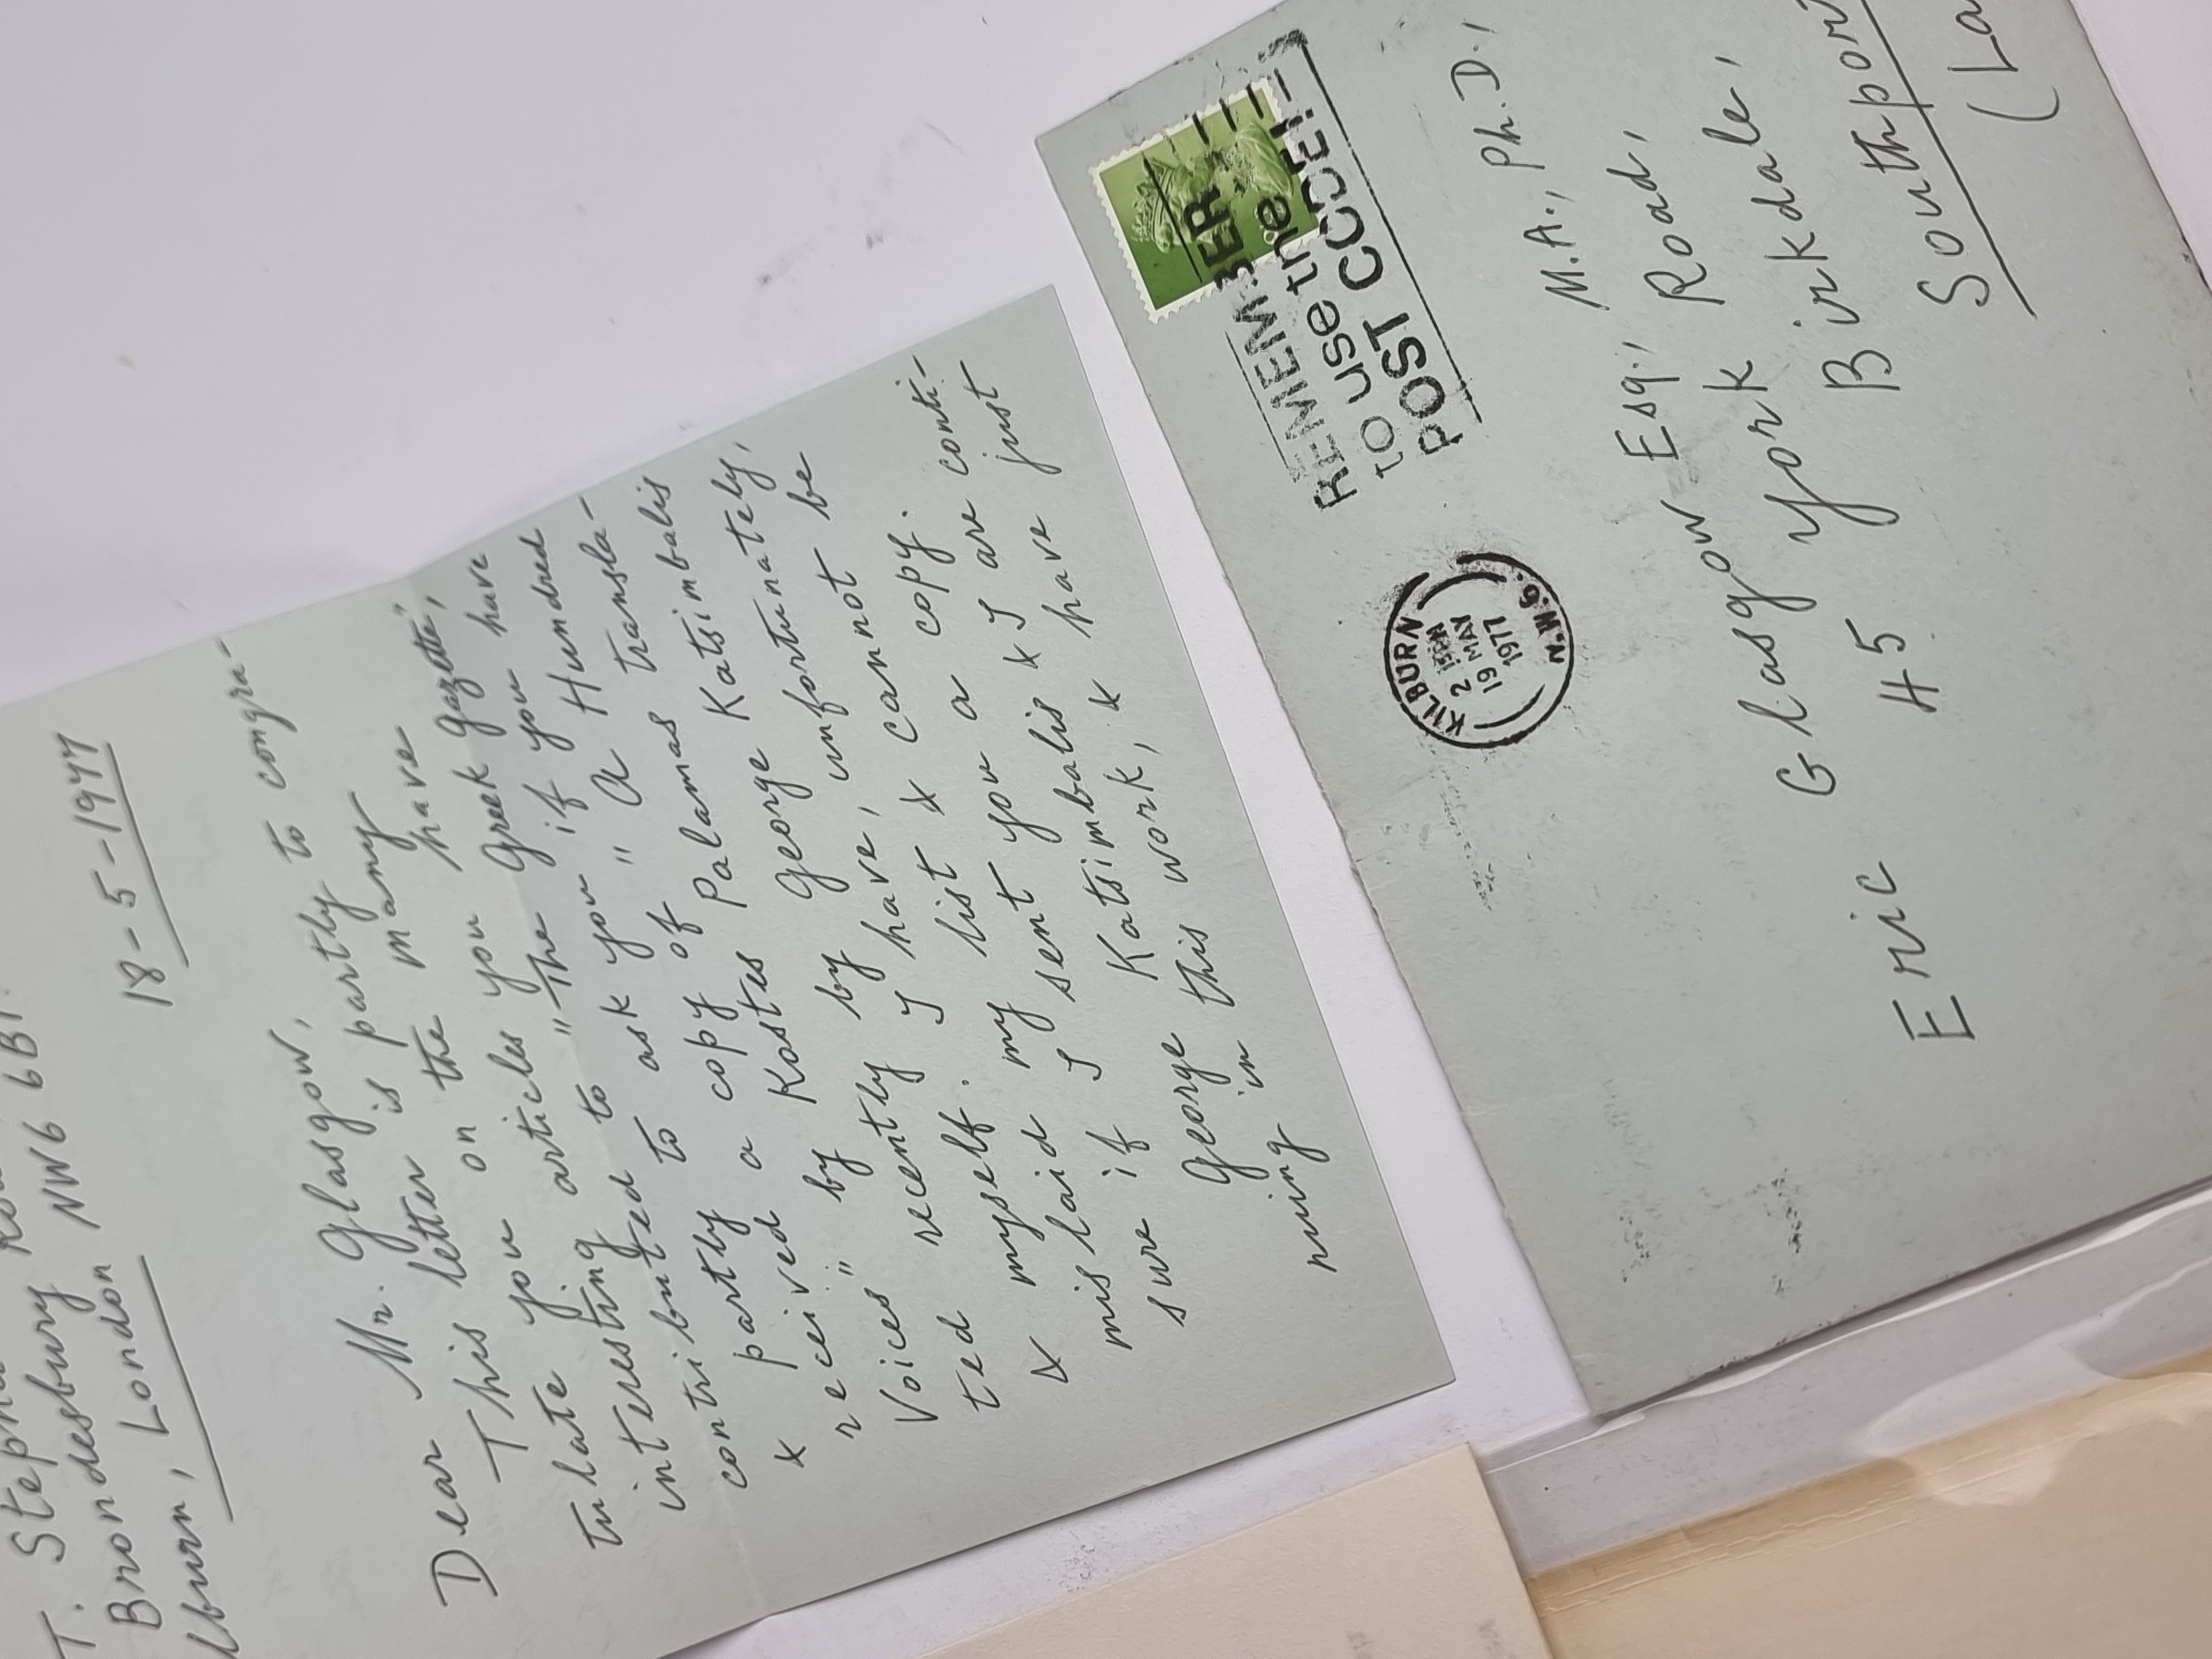 T.
Brondesbury
London NW6 6BT.
18-5-1977
Dear Mr. Glasgow,
This letter is partly to congra-
tulate you on the many
interesting articles you have
contributed to "The Greek Gazette",
& partly to ask you if you have
received a copy of "A Hundred
Voices" by Kostes Palamas transla-
ted recently by George Katsimbalis
& myself. I have, unfortunately,
mislaid my list & cannot be
sure if I sent you a copy.
George Katsimbalis & I are conti-
nuing in this work, & have just
KILBURN
2 15PM
19 MAY
1977
N.W.6.
REMEMBER
to use the
POST CODE!
Eric Glasgow Esq., M.A., Ph.D.,
45 York Road,
Birkdale,
Southport
(La